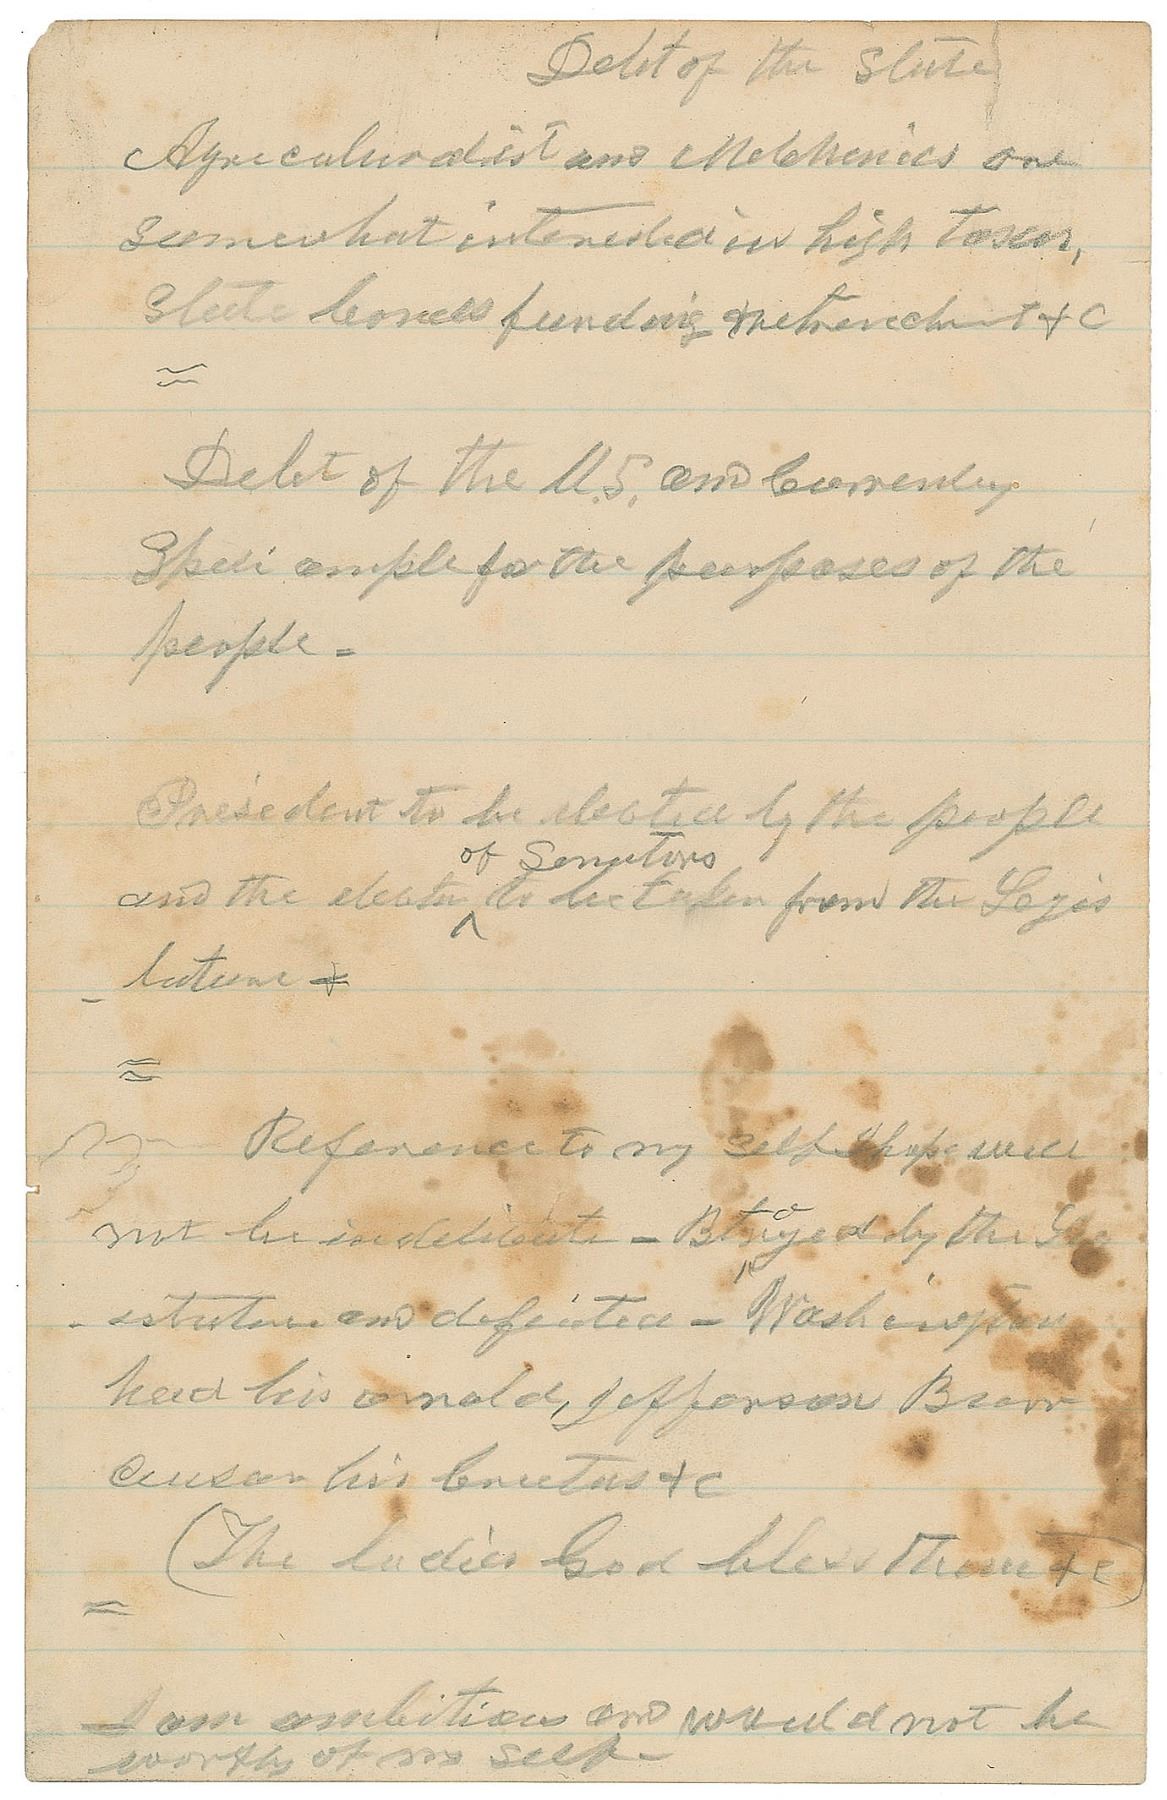 Debt of the State
Agriculturalist and Mechanics are
somewhat interested in high taxes,
State bonds funding retrenchment &c
Debt of the U.S. and Currency
Speci ample for the purposes of the
people -
President to be elected by the people
of Senators
and the election to be taken from the Legis
lature &
Reference to my self I hope will
not be indelicate - Btrayed by the
and defeated - Washington
had his arnold, Jefferson Burr
Ceusar his Brutus &c
(The ladies God bless them &c)
I am ambitious and would not be
worthy of my self -